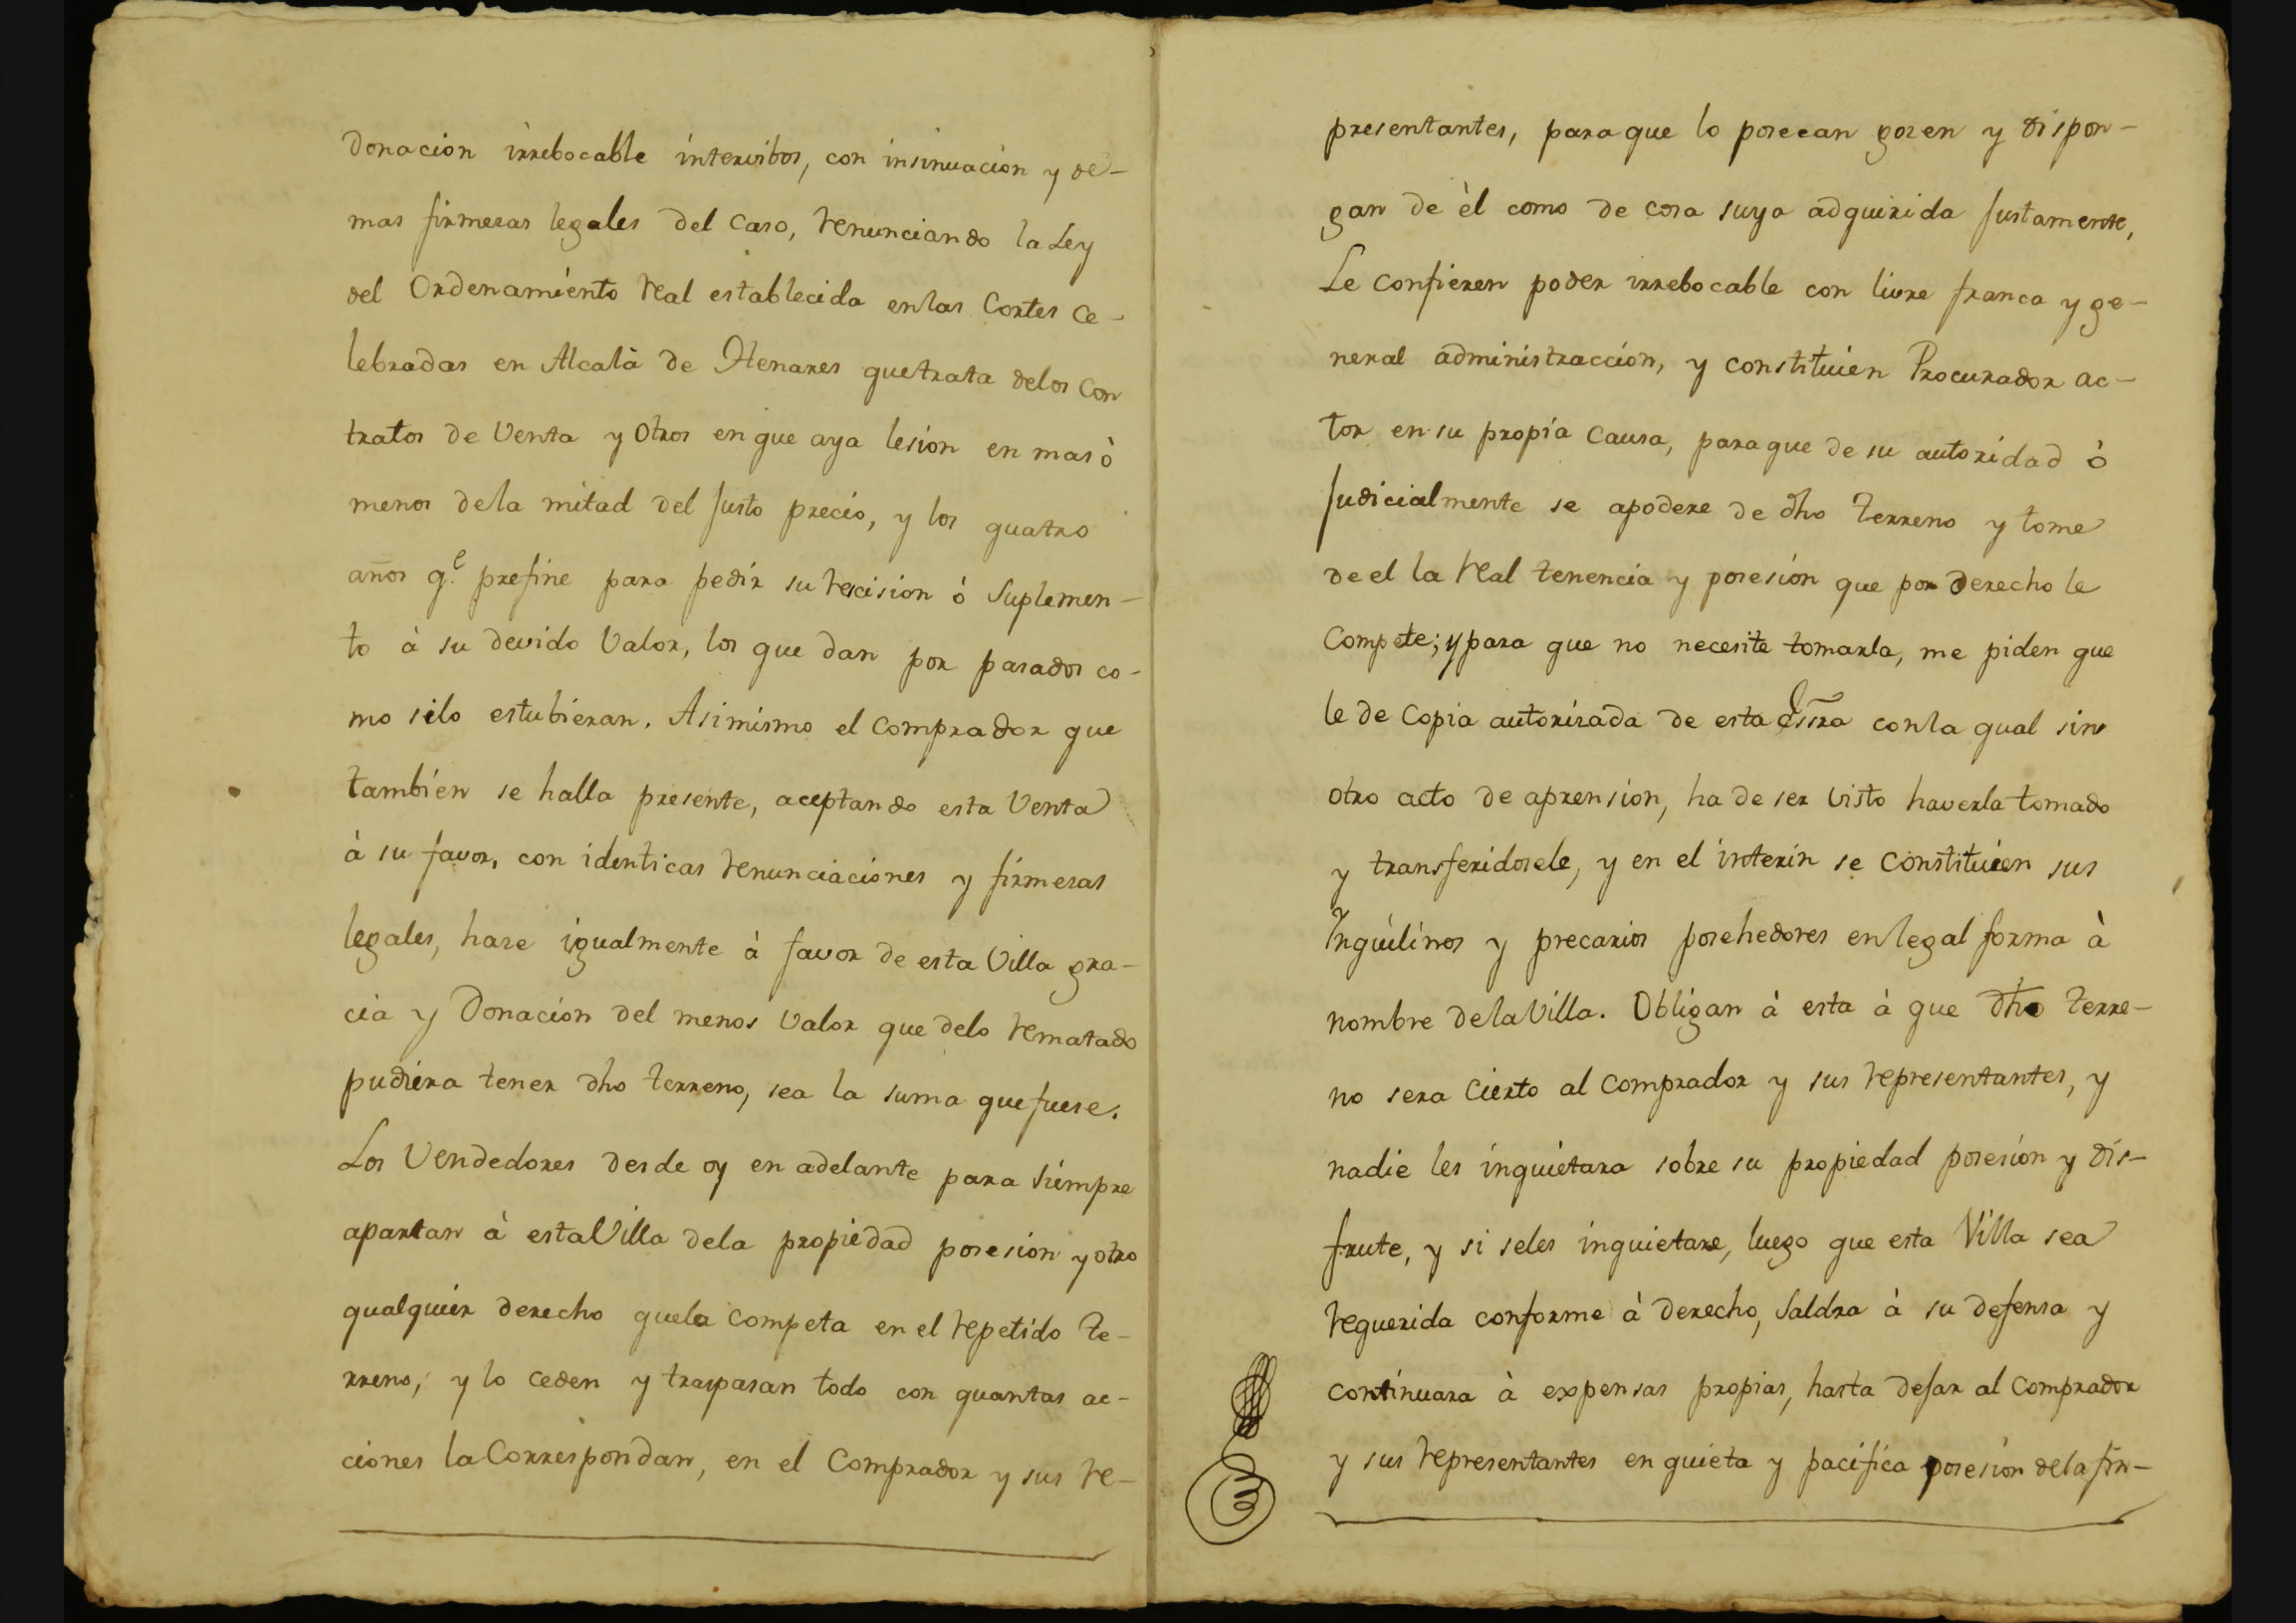 donacion irrebocable intervibos, con insinuacion y de-
mas firmezas legales del caso, renunciando la Ley
del Ordenamiento Real establecida enlas Cortes ce-
lebradas en Alcalà de Henares quetrata delos con
tratos de Venta y otros enque aya lesion en mas ò
menos dela mitad del justo precio, y los quatro
años q.e prefine para pedir su rescision ò suplemen-
to à su devido Valor, los que dan por pasados co-
mo silo estubieran. Asimismo el comprador que
tambien se halla presente, aceptando esta Venta
à su favor, con identicas renunciaciones y firmesas
legales, hase igualmente à favor de esta Villa gra-
cia y Donacion del menos valor que delo rematado
pudiera tener dho terreno, sea la suma quefuese.
Los Vendedores desde oy en adelante para siempre
apartan à estaVilla dela propiedad posesion y otro
qualquier derecho quela competa en el repetido te-
rreno; y lo ceden y traspasan todo con quantas ac-
ciones laCorrespondan, en el Comprador y sus re-
presentantes, paraque lo posecan gozen y dispon-
gan de èl como de cosa suya adquirida justamente,
Le confieren poder irrebocable con livre franca y ge-
neral administracción, y constituien Procurador ac-
tor en su propia causa, paraque de su autoridad ò
judicialmente se apodere de dho terreno y tome
de el la real tenencia y posesion que por derecho le
compete; y para que no necesite tomarla, me piden que
le de copia autorizada de esta Essra conla qual sin
otro acto de aprension, ha de ser visto haverla tomado
y transferidosele, y en el interin se constituien sus
Inquilinos y precarios posehedores enlegal forma à
nombre delaVilla. Obligan à esta à que dho terre-
no sera cierto al comprador y sus representantes, y
nadie les inquietara sobre su propiedad posesion y dis-
frute, y si seles inquietare, luego que esta Villa sea
requerida conforme à derecho, saldra à su defensa y
continuara à expensas propias, hasta dejar al comprador
y sus representantes en quieta y pacifica posesion dela fin-